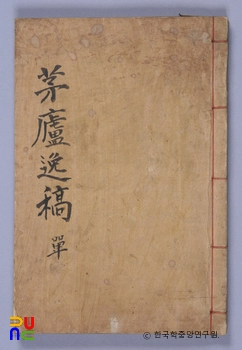 茅廬逸稿
單
ⓒ 한국학중앙연구원